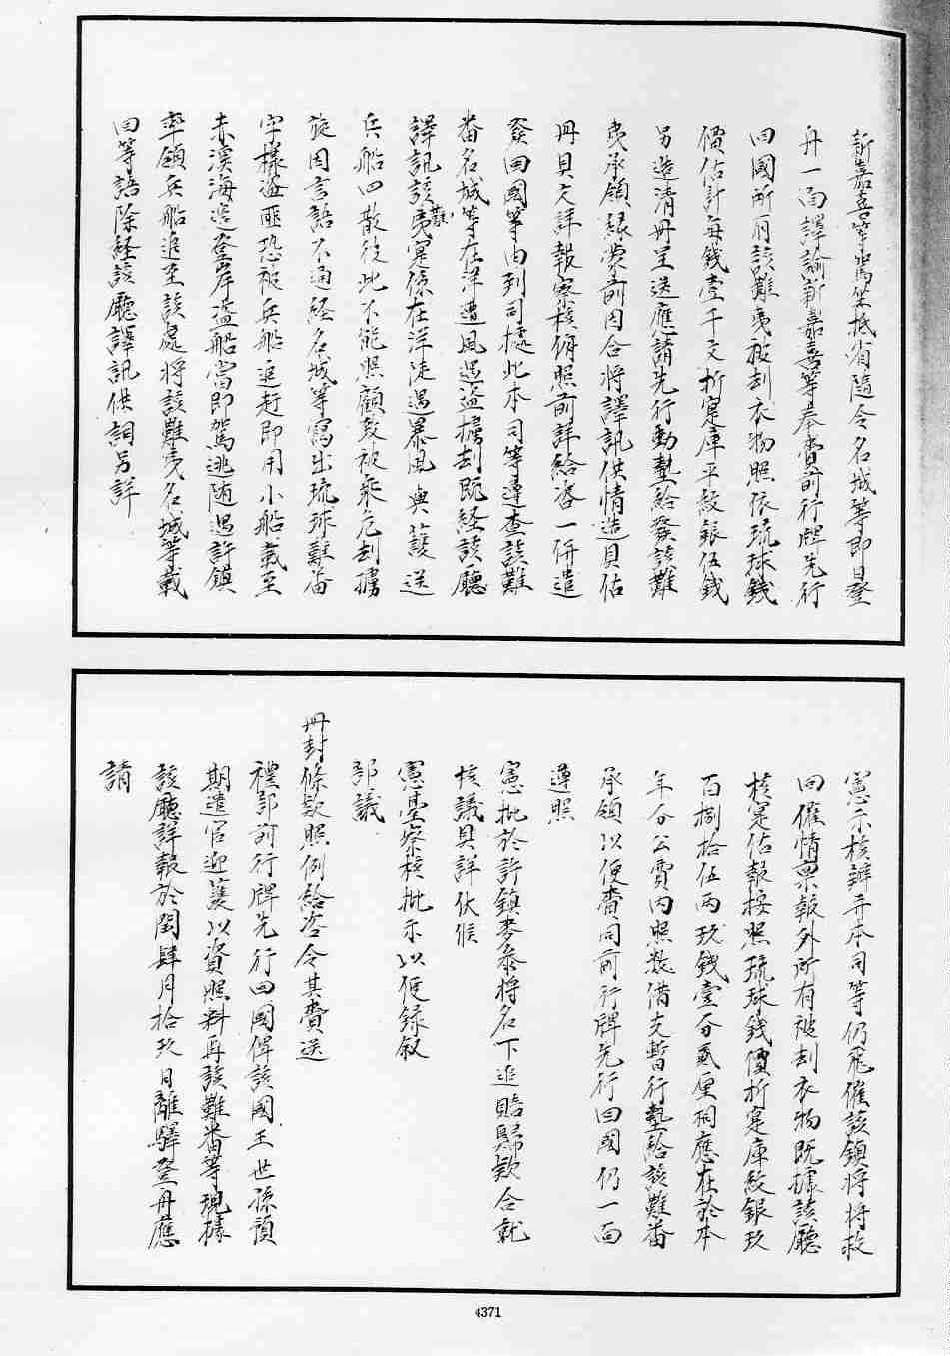 新嘉喜等駕坐抵省隨令名城等即日登
舟一面譯諭新嘉喜等奉賫前行牌先行
回國所有該難夷被刦衣物照依琉球錢
價估計每錢壹千文折寔庫平紋銀伍錢
另造清冊呈送應請先行動墊給發該難
夷承領緣蒙前因合將譯訊供情造具估
冊具文詳報察核俯照前詳給咨一併遣
發回國等由到司據此本司等遵查該難
番名城等在洋遭風遇盜擄刦既経該廳
譯訊該難夷寔係在洋陡遇暴風與護送
兵船四散彼此不能照顧致被乘危刦擄
旋因言語不通経名城等寫出琉球難番
字樣盜匪恐被兵船追赶即用小船載至
赤溪海邊登岸盜船當即駕逃随遇許鎮
率領兵船追至該處將該難夷名城等載
回等語除経該廳譯訊供詞另詳
憲示核辦并本司等仍飛催該鎮將將救
回催情禀報外所有被刦衣物既據該廳
核寔估報按照琉球錢價折寔庫紋銀玖
百捌拾伍兩玖錢壹分貳厘相應在於本
年分公費内照数借支暫行墊給該難番
承領以便賫同前行牌先行回國仍一面
遵照
憲批於許鎮麥叅將名下追賠歸欵合就
核議具詳伏候
憲臺察核批示以便録叙
部議
冊封條欵照例給咨令其賫送
禮部前行牌先行回國俾該國王世孫預
期遣官迎護以資照料再該難番等現據
該廳詳報於閏肆月拾玖日離驛登舟應
請
4371